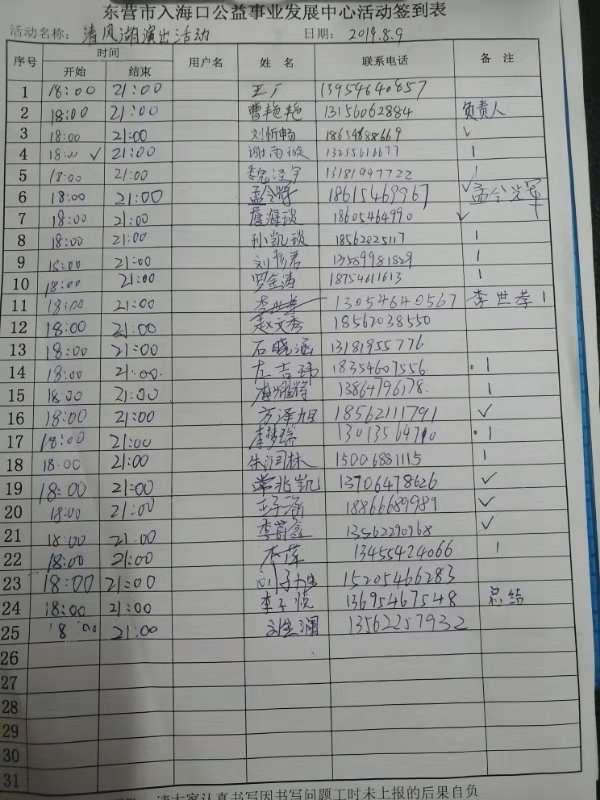 东营市入海口公益事业发展中心活动签到表
活动名称: 清风湖演出活动 日期: 2019.8.9
序号 时间 用户名 姓名 联系电话 备注
开始 结束
1 18:00 21:00 王广 13954640857
2 18:00 21:00 曹艳艳 13156062884 负责人
3 18:00 21:00 刘忻畅 18654688669 ✓
4 18:00 ✓ 21:00 1
5 18:00 21:00 13181947722 1
6 18:00 21:00 孟令辉 18615469967 ✓
7 18:00 21:00 18605464990 ✓
8 18:00 21:00 孙凯谈 18562025117 1
9 18:00 21:00 13589981829 1
10 18:00 21:00 罗金涛 18754611613 1
11 18:00 21:00 13054640567 李世孝 1
12 18:00 21:00 赵文秀 18562038550
13 18:00 21:00 石晓涵 13181955776
14 18:00 21:00 左吉玮 18354607556 1
15 18:00 21:00 13864796178 1
16 18:00 21:00 方泽旭 18562111791 ✓
17 18:00 21:00 李梦瑶 1
18 18:00 21:00 朱润林 15006881115 1
19 18:00 21:00 常兆凯 13706478626 ✓
20 18:00 21:00 王子涵 18866689989 ✓
21 18:00 21:00 13562290968 ✓
22 18:00 21:00 13455424066 1
23 18:00 21:00 15205466283
24 18:00 21:00 李子悦 13695467548 总结
25 18:00 21:00 13562257932
26
27
28
29
30
31
请大家认真书写因书写问题工时未上报的后果自负